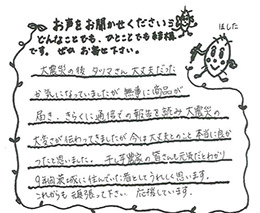 お声をお聞かせください
どんなことでも、ひとことでも結構
です。ぜひお寄せ下さい。
ほした
大震災の後 タツマさん大丈夫だった
か気になっていましたが 無事に商品が
届き、きらくに通信での報告を読み 大震災の
大きさが伝わってきましたが 今は大丈夫とのこと 本当に良か
ったと思いました。干し芋農家の皆さんも元気だとわかり
9年間茨城に住んでいた者としてうれしく思います。
これからも頑張って下さい 応援しています。